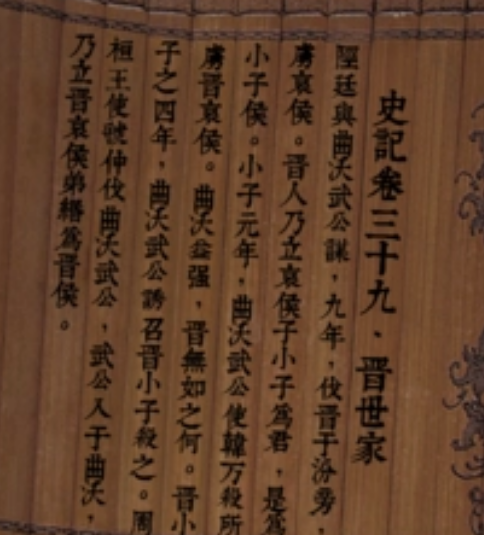 史記卷三十九·晉世家
陘廷與曲沃武公謀，九年，伐晉于汾旁，
虜哀侯。晉人乃立哀侯子小子爲君，是爲
小子侯。小子元年，曲沃武公使韓万殺所
虜晉哀侯。曲沃益强，晉無如之何。晉小
子之四年，曲沃武公誘召晉小子殺之。周
桓王使虢仲伐曲沃武公，武公入于曲沃，
乃立晉哀侯弟緡爲晉侯。